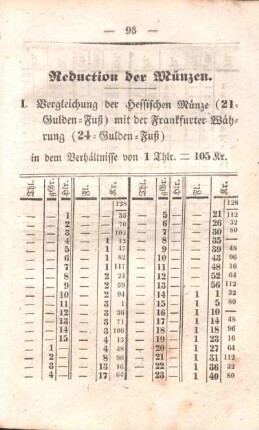 — 95 —
Reduction der Münzen.
I. Vergleichung der Hessischen Münze (21-
Gulden-Fuß) mit der Frankfurter Wäh-
rung (24-Gulden-Fuß)
in dem Verhältnisse von 1 Thlr. = 105 Kr.
Thl. gGr. Hlr. Fl. Kr. Thl. gGr. Hlr. Fl. Kr.
128 128
— — 1 — — 35 — 5 — — 21 112
— — 2 — — 70 — 6 — — 26 32
— — 3 — — 105 — 7 — — 30 80
— — 4 — 1 12 — 8 — — 35 —
— — 5 — 1 47 — 9 — — 39 48
— — 6 — 1 82 — 10 — — 43 96
— — 7 — 1 117 — 11 — — 48 16
— — 8 — 2 24 — 12 — — 52 64
— — 9 — 2 59 — 13 — — 56 112
— — 10 — 2 94 — 14 — 1 1 32
— — 11 — 3 1 — 15 — 1 5 80
— — 12 — 3 36 — 16 — 1 10 —
— — 13 — 3 71 — 17 — 1 14 48
— — 14 — 3 106 — 18 — 1 18 96
— — 15 — 4 13 — 19 — 1 23 16
— 1 — — 4 48 — 20 — 1 27 64
— 2 — — 8 96 — 21 — 1 31 112
— 3 — — 13 16 — 22 — 1 36 32
— 4 — — 17 64 — 23 — 1 40 80